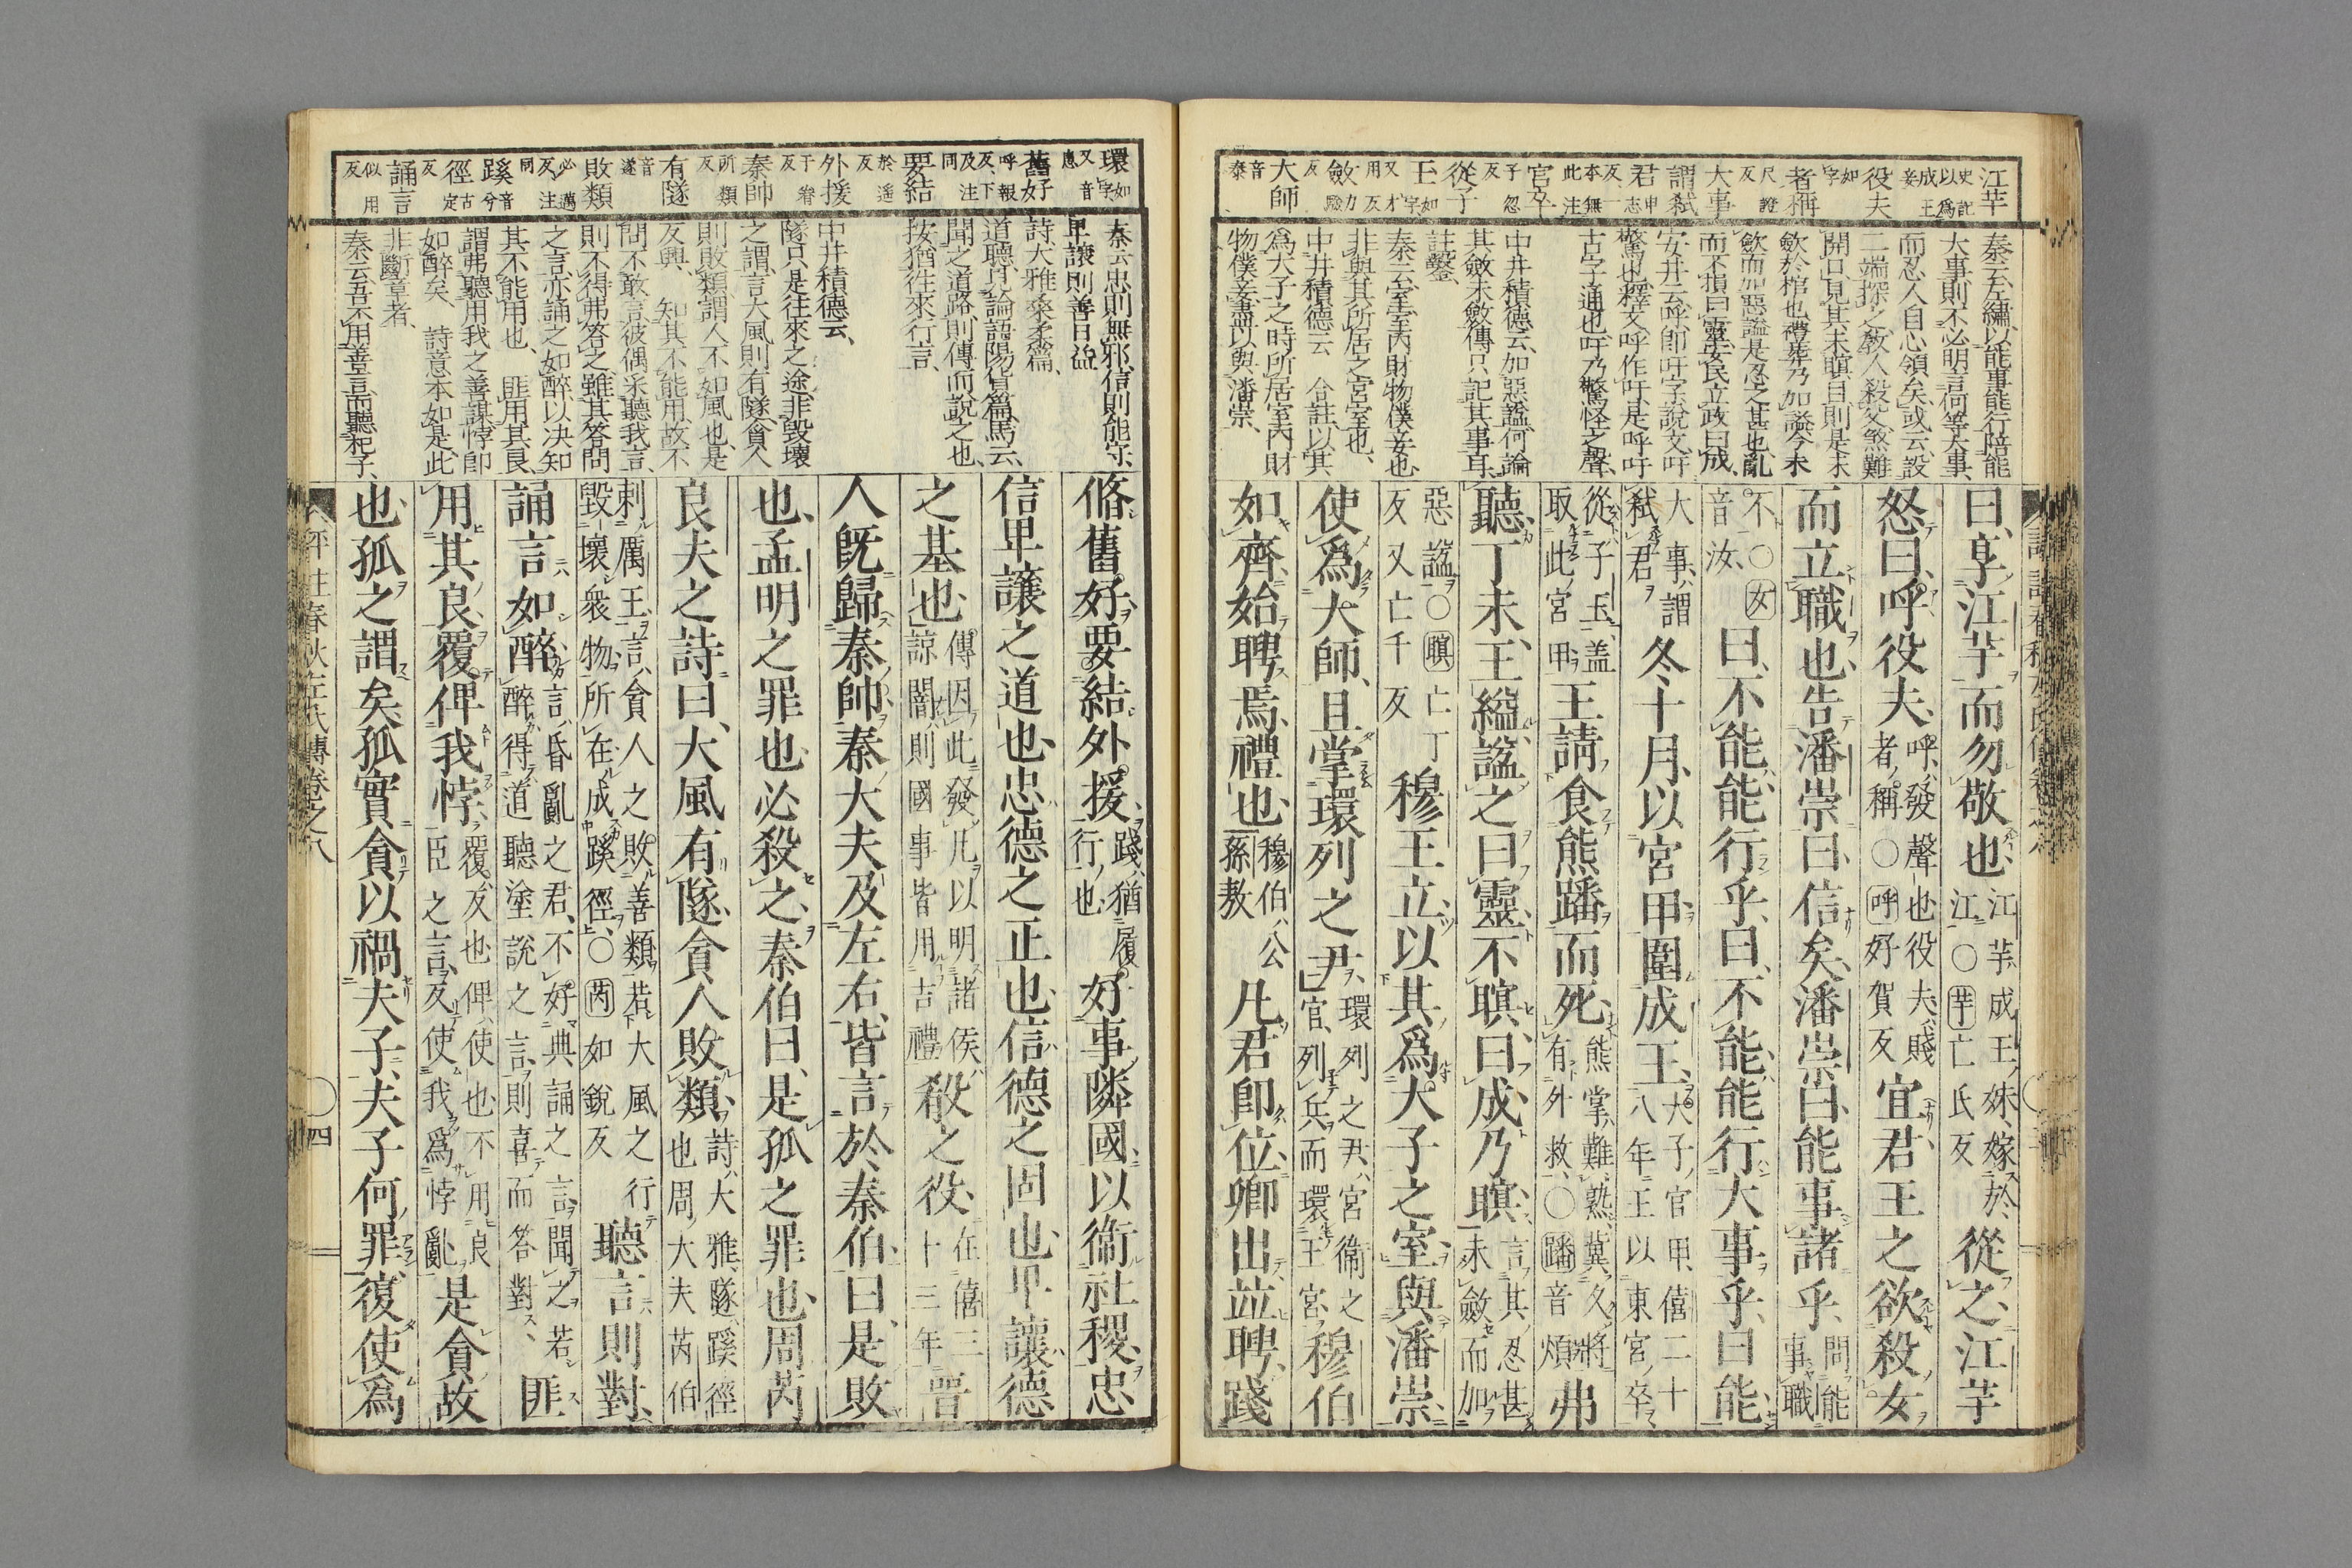 江芉 史記以爲成王妾
役夫 如字
者稱 尺證反
大事
謂弑君 申志反一本無此注
宮卒 子忽反
從子
王 如字又才用反
斂 力驗反
大師 音泰
秦云左繡以能事能行陪能
大事則不必明言何等大事
而忍人自心領矣或云設
二端探之敎人殺父煞難
開口見其未瞑目則是未
斂於棺也禮葬乃加謚今未
斂而加惡謚是忍之甚也亂
而不損曰靈安民立政曰成
安井云呼即吁字說文吁
驚也釋文呼作吁是呼吁
古字通也吁乃驚怪之聲
中井積德云加惡謚何論
其斂未斂傳只記其事耳
註鑿
秦云室室內財物僕妾也
非與其所居之宮室也
中井積德云 合註以其
爲大子之時所居室內財
物僕妾盡以與潘崇
曰享江芉而勿敬也江芉成王妹嫁於江○芉亡氏反從之江芉
怒曰呼役夫呼發聲也役夫賤者稱○呼好賀反宜君王之欲殺女
而立職也告潘崇曰信矣潘崇曰能事諸乎問能事職
不○女音汝曰不能能行乎曰不能能行大事乎曰能
大事謂弑君冬十月以宮甲圍成王大子宮甲僖二十八年王以東宮卒
從子玉蓋取此宮甲王請食熊蹯而死熊掌難熟冀久將有外救○蹯音煩弗
聽丁未王縊謚之曰靈不瞑曰成乃瞑言其忍甚未斂而加
惡謚○瞑亡丁反又亡千反穆王立以其爲大子之室與潘崇
使爲大師且掌環列之尹環列之尹宮衞之官列兵而環王宮穆伯
如齊始聘焉禮也穆伯公孫敖凡君即位卿出竝聘踐
環 如字又音患
舊好 呼報反下及注同
要結 於遙反
外援 于眷反
秦帥 所類反
有隧 音遂
敗類 必邁反注同
蹊 音兮
徑 古定反
誦言 似用反
秦云忠則無邪信則能守
卑讓則善日益
詩大雅桑柔篇
道聽見論語陽貨篇馬云
聞之道路則傳而說之也
按猶往來行言
中井積德云
隧只是往來之途非毀壞
之謂言大風則有隧貪人
則敗類謂人不如風也是
反興 知其不能用故不
問不敢言彼偶采聽我言
則不得弗答之雖其答問
之言亦誦之如醉以決知
其不能用也 匪用其良
謂弗聽用我之善謀悖即
如醉矣 詩意本如是此
非斷章者
秦云吾不用善言而聽杞子
脩舊好要結外援踐猶履行也好事隣國以衞社稷忠
信卑讓之道也忠德之正也信德之固也卑讓德
之基也傳因此發凡以明諸侯諒闇則國事皆用吉禮殽之役在僖三十三年晉
人既歸秦帥秦大夫及左右皆言於秦伯曰是敗
也孟明之罪也必殺之秦伯曰是孤之罪也周芮
良夫之詩曰大風有隧貪人敗類詩大雅隧蹊徑也周大夫芮伯
刺厲王言貪人之敗善類若大風之行毀壞衆物所在成蹊徑○芮如銳反聽言則對
誦言如醉言昏亂之君不好典誦之言聞之若醉得道聽塗說之言則喜而答對匪
用其良覆俾我悖覆反也俾使也不用良臣之言反使我爲悖亂是貪故
也孤之謂矣孤實貪以禍夫子夫子何罪復使爲
評註春秋左氏傳卷之八
四